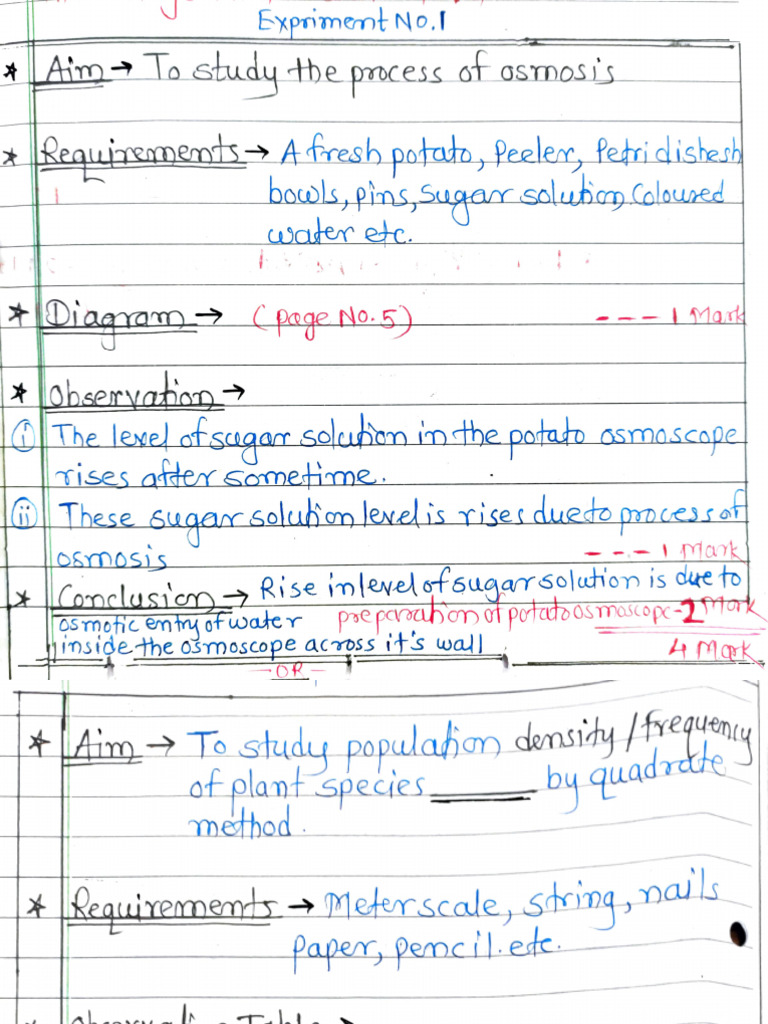 Expriment No.1
* Aim → To study the process of osmosis
* Requirements → A fresh potato, Peeler, Petri dishesh
bowls, pins, sugar solution, Coloured
water etc.
* Diagram → (page No. 5) --- 1 Mark
* Observation →
(i) The level of sugar solution in the potato osmoscope
rises after sometime.
(ii) These sugar solution level is rises due to process of
osmosis --- 1 Mark
* Conclusion → Rise in level of sugar solution is due to
osmotic entry of water preparation of potato osmoscope - 2 Mark
inside the osmoscope across it's wall 4 Mark
- OR -
* Aim → To study population density / frequency
of plant species ______ by quadrate
method.
* Requirements → Meter scale, string, nails
paper, pencil. etc.